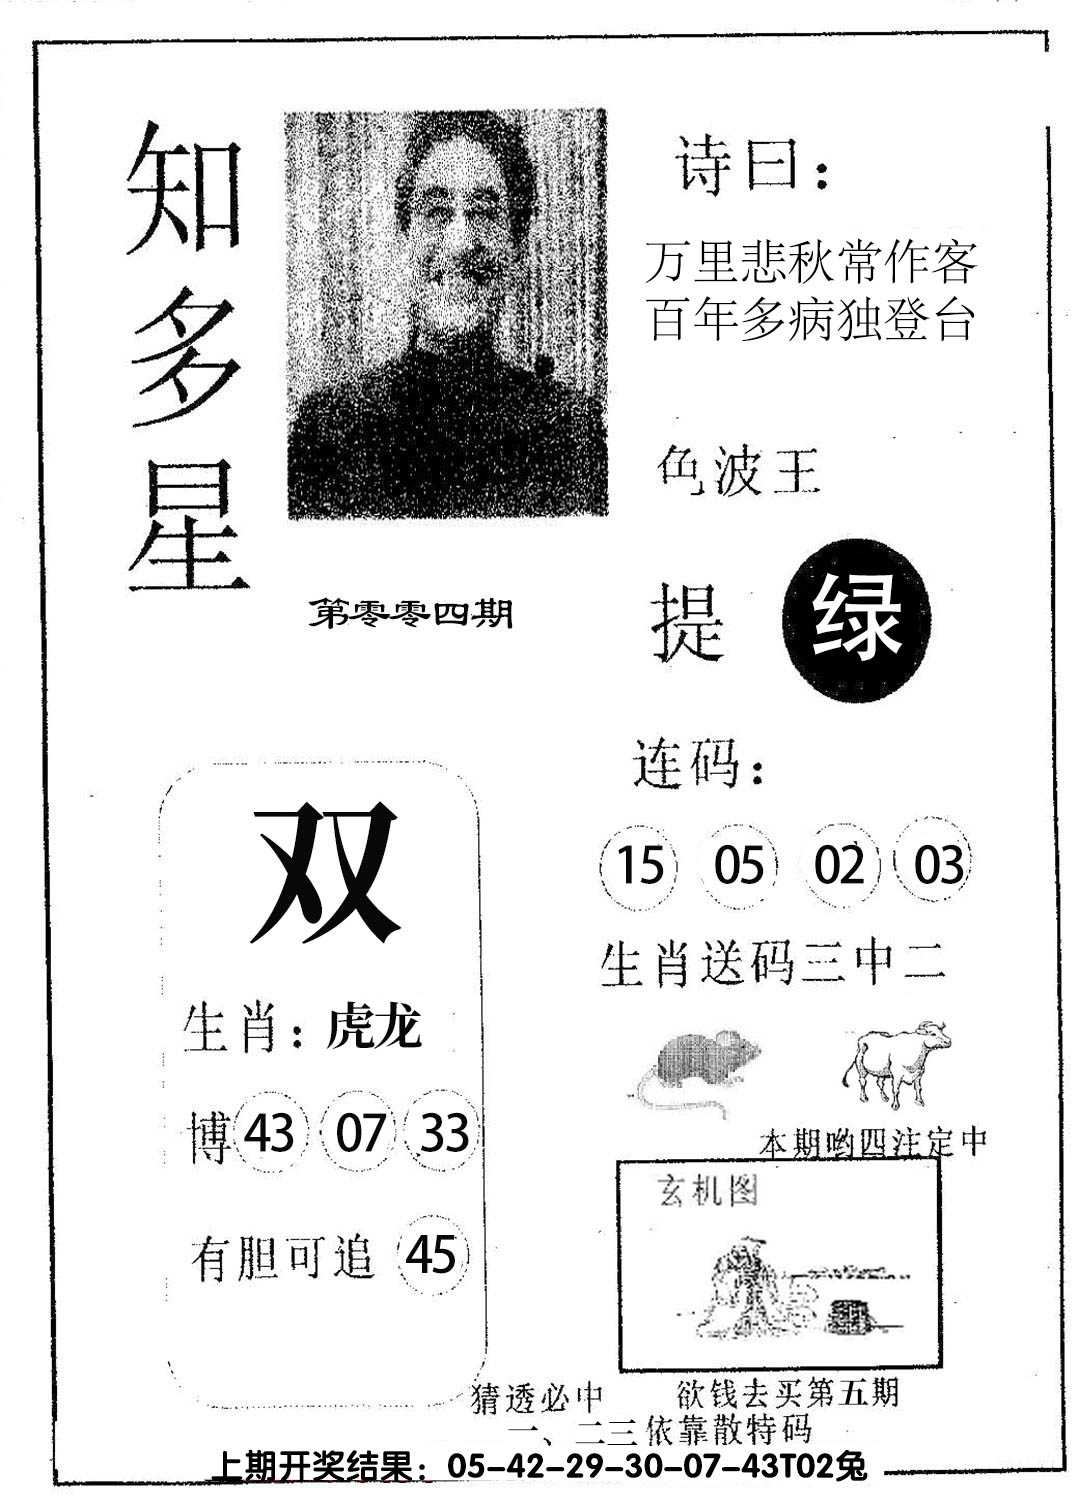 知多星
诗曰：
万里悲秋常作客
百年多病独登台
色波王
提 绿
第零零四期
连码：
15 05 02 03
生肖送码三中二
双
生肖：虎龙
博 43 07 33
有胆可追 45
本期哟四注定中
玄机图
猜透必中
欲钱去买第五期
一、二三依靠散特码
上期开奖结果：05-42-29-30-07-43T02兔